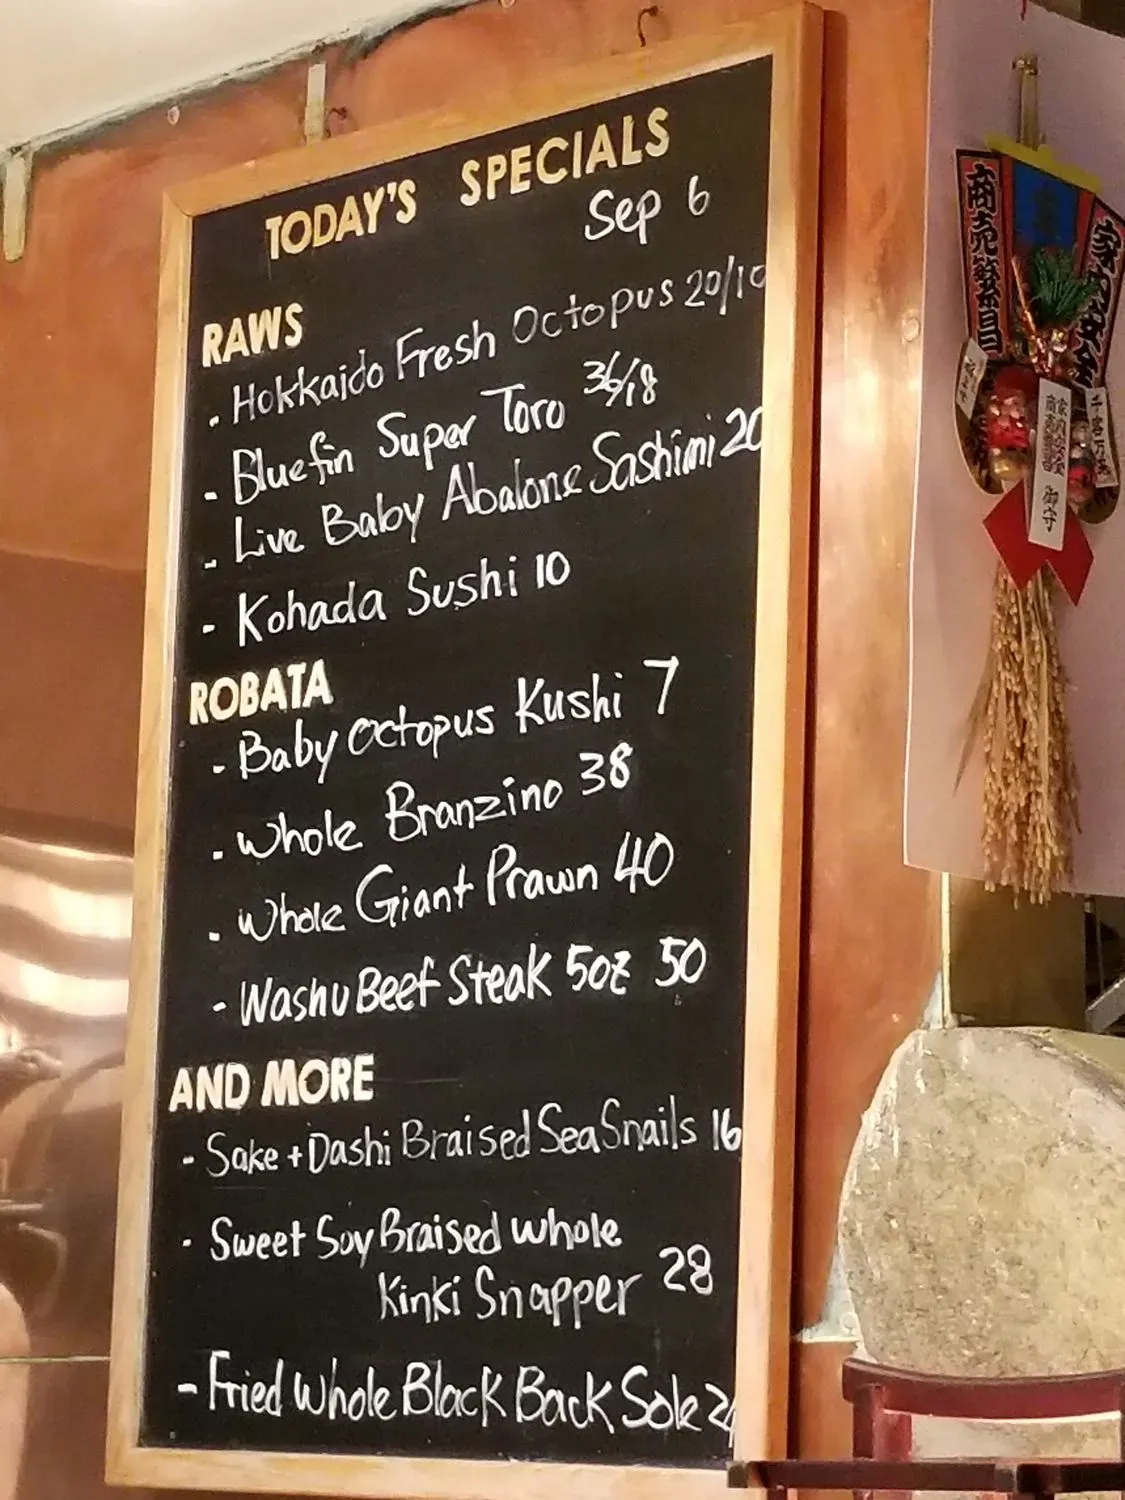 TODAY'S SPECIALS
Sep 6
RAWS
- Hokkaido Fresh Octopus 20/10
- Bluefin Super Toro 36/18
- Live Baby Abalone Sashimi 20
- Kohada Sushi 10
ROBATA
- Baby Octopus Kushi 7
- Whole Branzino 38
- Whole Giant Prawn 40
- Washu Beef Steak 5oz 50
AND MORE
- Sake + Dashi Braised Sea Snails 16
- Sweet Soy Braised whole
Kinki Snapper 28
- Fried whole Black Back Sole
商売繁昌
家内安全
千客万来
家内安全
商売繁昌
御守